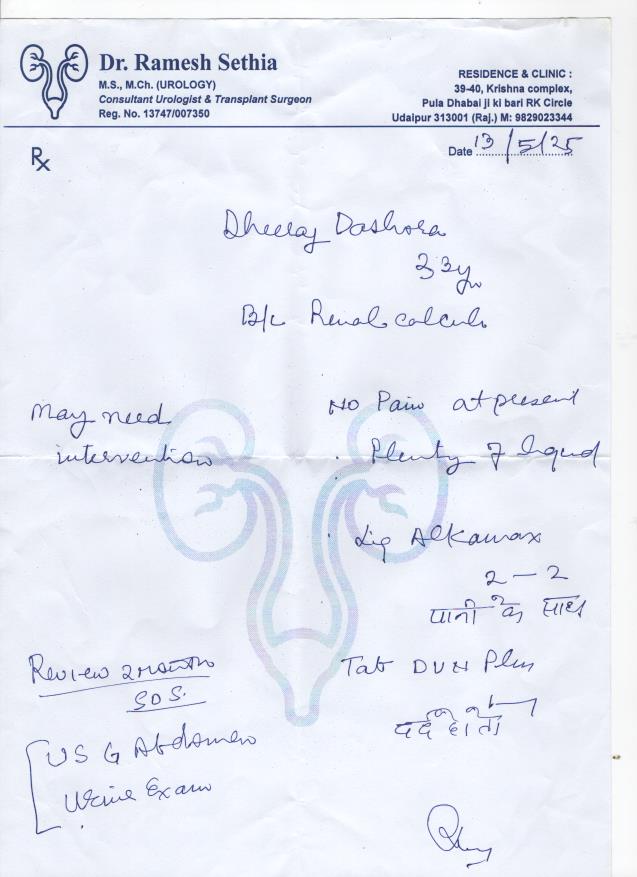 Dr. Ramesh Sethia
M.S., M.Ch. (UROLOGY)
Consultant Urologist & Transplant Surgeon
Reg. No. 13747/007350
RESIDENCE & CLINIC :
39-40, Krishna complex,
Pula Dhabai ji ki bari RK Circle
Udaipur 313001 (Raj.) M: 9829023344
Rx
Date 13/5/25
Dheeraj Dashora
33y
B/L Renal calculi
May need
intervention
NO Pain at present
Plenty of liquid
Liq Alkamax
2 - 2
पानी के साथ
Tab DVN Plus
दर्द हो तो
Review 2 month
SOS.
USG Abdomen
Urine Exam